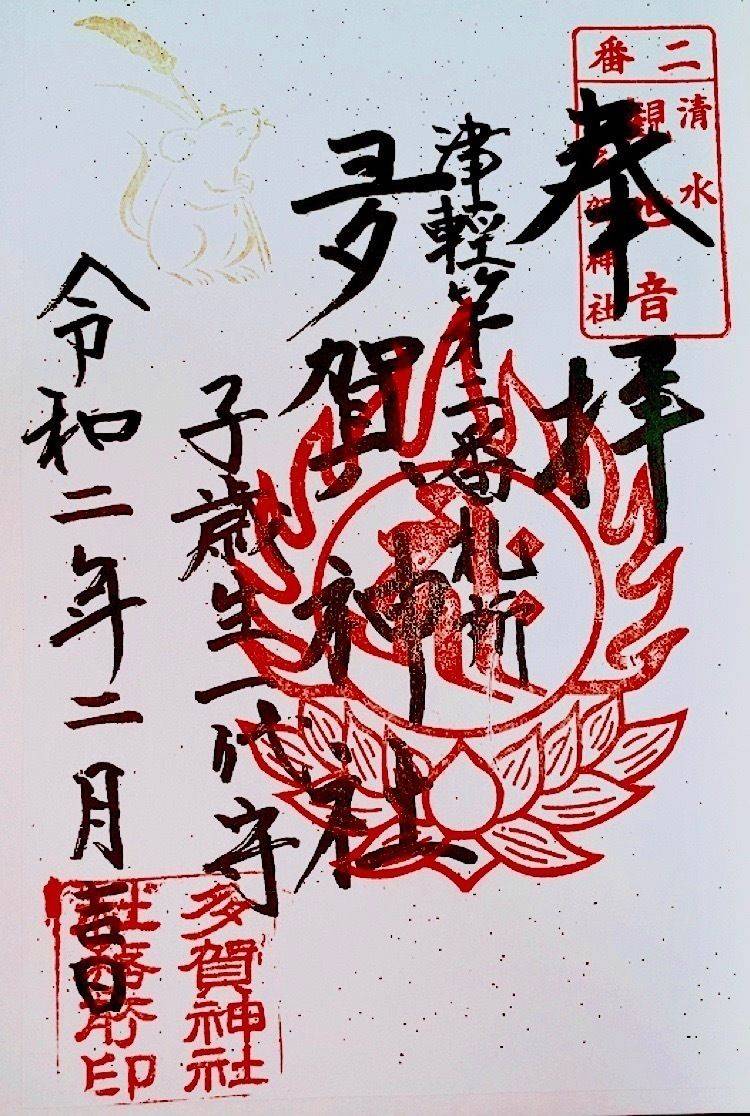 奉拝
津輕第二番札所
多賀神社
子歳生一代守
令和二年二月吉日
二番
清水
観世音
多賀神社
多賀神社
社務所印